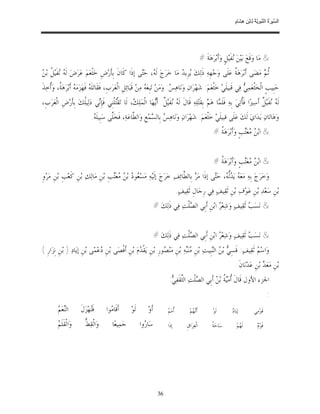 السِّيرَةُ النَّبَوِيَّةُ لابْنِ هِشَامٍ
& مَا وَقَعَ بَيْنَ نُفَيْلٍ وَأَبْرَهَةَ #
ثُمَّ مَضَى أَبْرَهَةُ عَلَى وَجْهِهِ ذَلِكَ يُرِيدُ مَا خَرَجَ لَهُ، حَتَّى إذَا كَانَ بِأَرْضِ خَثْعَمَ عَرَضَ لَهُ نُفَيْلُ بْنُ
حَبِيبٍ الْخَثْعَمِيُّ فِي قَبِيلَيْ خَثْعَمَ شَهْرَانَ وَنَاهِسَ وَمَنْ تَبِعَهُ مِنْ قَبَائِلِ الْعَرَبِ، فَقَاتَلَهُ فَهَزَمَهُ أَبْرَهَةُ، وَأُخِذَ
لَهُ نُفَيْلٌ أَسِيرًا فَأُتِيَ بِهِ فَلَمَّا هَمَّ بِقَتْلِهِ قَالَ لَهُ نُفَيْلٌ أَيُّهَا الْمَلِكُ، لَا تَقْتُلْنِي فَإِنِّي دَلِيلُكَ بِأَرْضِ الْعَرَبِ،
وَهَاتَانِ يَدَايَ لَكَ عَلَى قَبِيلَيْ خَثْعَمَ شَهْرَانَ وَنَاهِسَ بِالسَّمْعِ وَالطَّاعَةِ، فَخَلَّى سَبِيلَهُ
& ابْنُ مُعَتِّبٍ وَأَبْرَهَةُ #
& ابْنُ مُعَتِّبٍ وَأَبْرَهَةُ #
وَخَرَجَ بِهِ مَعَهُ يَدُلُّهُ، حَتَّى إذَا مَرَّ بِالطَّائِفِ خَرَجَ إلَيْهِ مَسْعُودُ بْنُ مُعَتِّبِ بْنِ مَالِكِ بْنِ كَعْبِ بْنِ عَمْرِو
بْنِ سَعْدِ بْنِ عَوْفِ بْنِ ثَقِيفٍ فِي رِجَالِ ثَقِيفٍ
& نَسَبُ ثَقِيفٍ وَشِعْرُ ابْنِ أَبِي الصَّلْتِ فِي ذَلِكَ #
& نَسَبُ ثَقِيفٍ وَشِعْرُ ابْنِ أَبِي الصَّلْتِ فِي ذَلِكَ #
وَاسْمُ ثَقِيفٍ قَسِيُّ بْنُ النَّبِيتِ بْنِ مُنَبِّهِ بْنِ مَنْصُورِ بْنِ يَقْدُمَ بْنِ أَفْصَى بْنِ دُعْمِيِّ بْنِ إيَادِ ( بْنِ نِزَارِ )
بْنِ مَعَدِّ بْنِ عَدْنَانَ
الجزء الأول قَالَ أُمَيَّةُ بْنُ أَبِي الصَّلْتِ الثَّقَفِيُّ
:
قَوْمِي إيَادٌ لَوْ أَنَّهُمْ أُمَمٌ أَوْ لَوْ أَقَامُوا فَتُهْزَلَ النَّعَمُ
قَوْمٌ لَهُمْ سَاحَةُ الْعِرَاقِ إذَا سَارُوا جَمِيعًا وَالْقِطُّ وَالْقَلَمُ
36